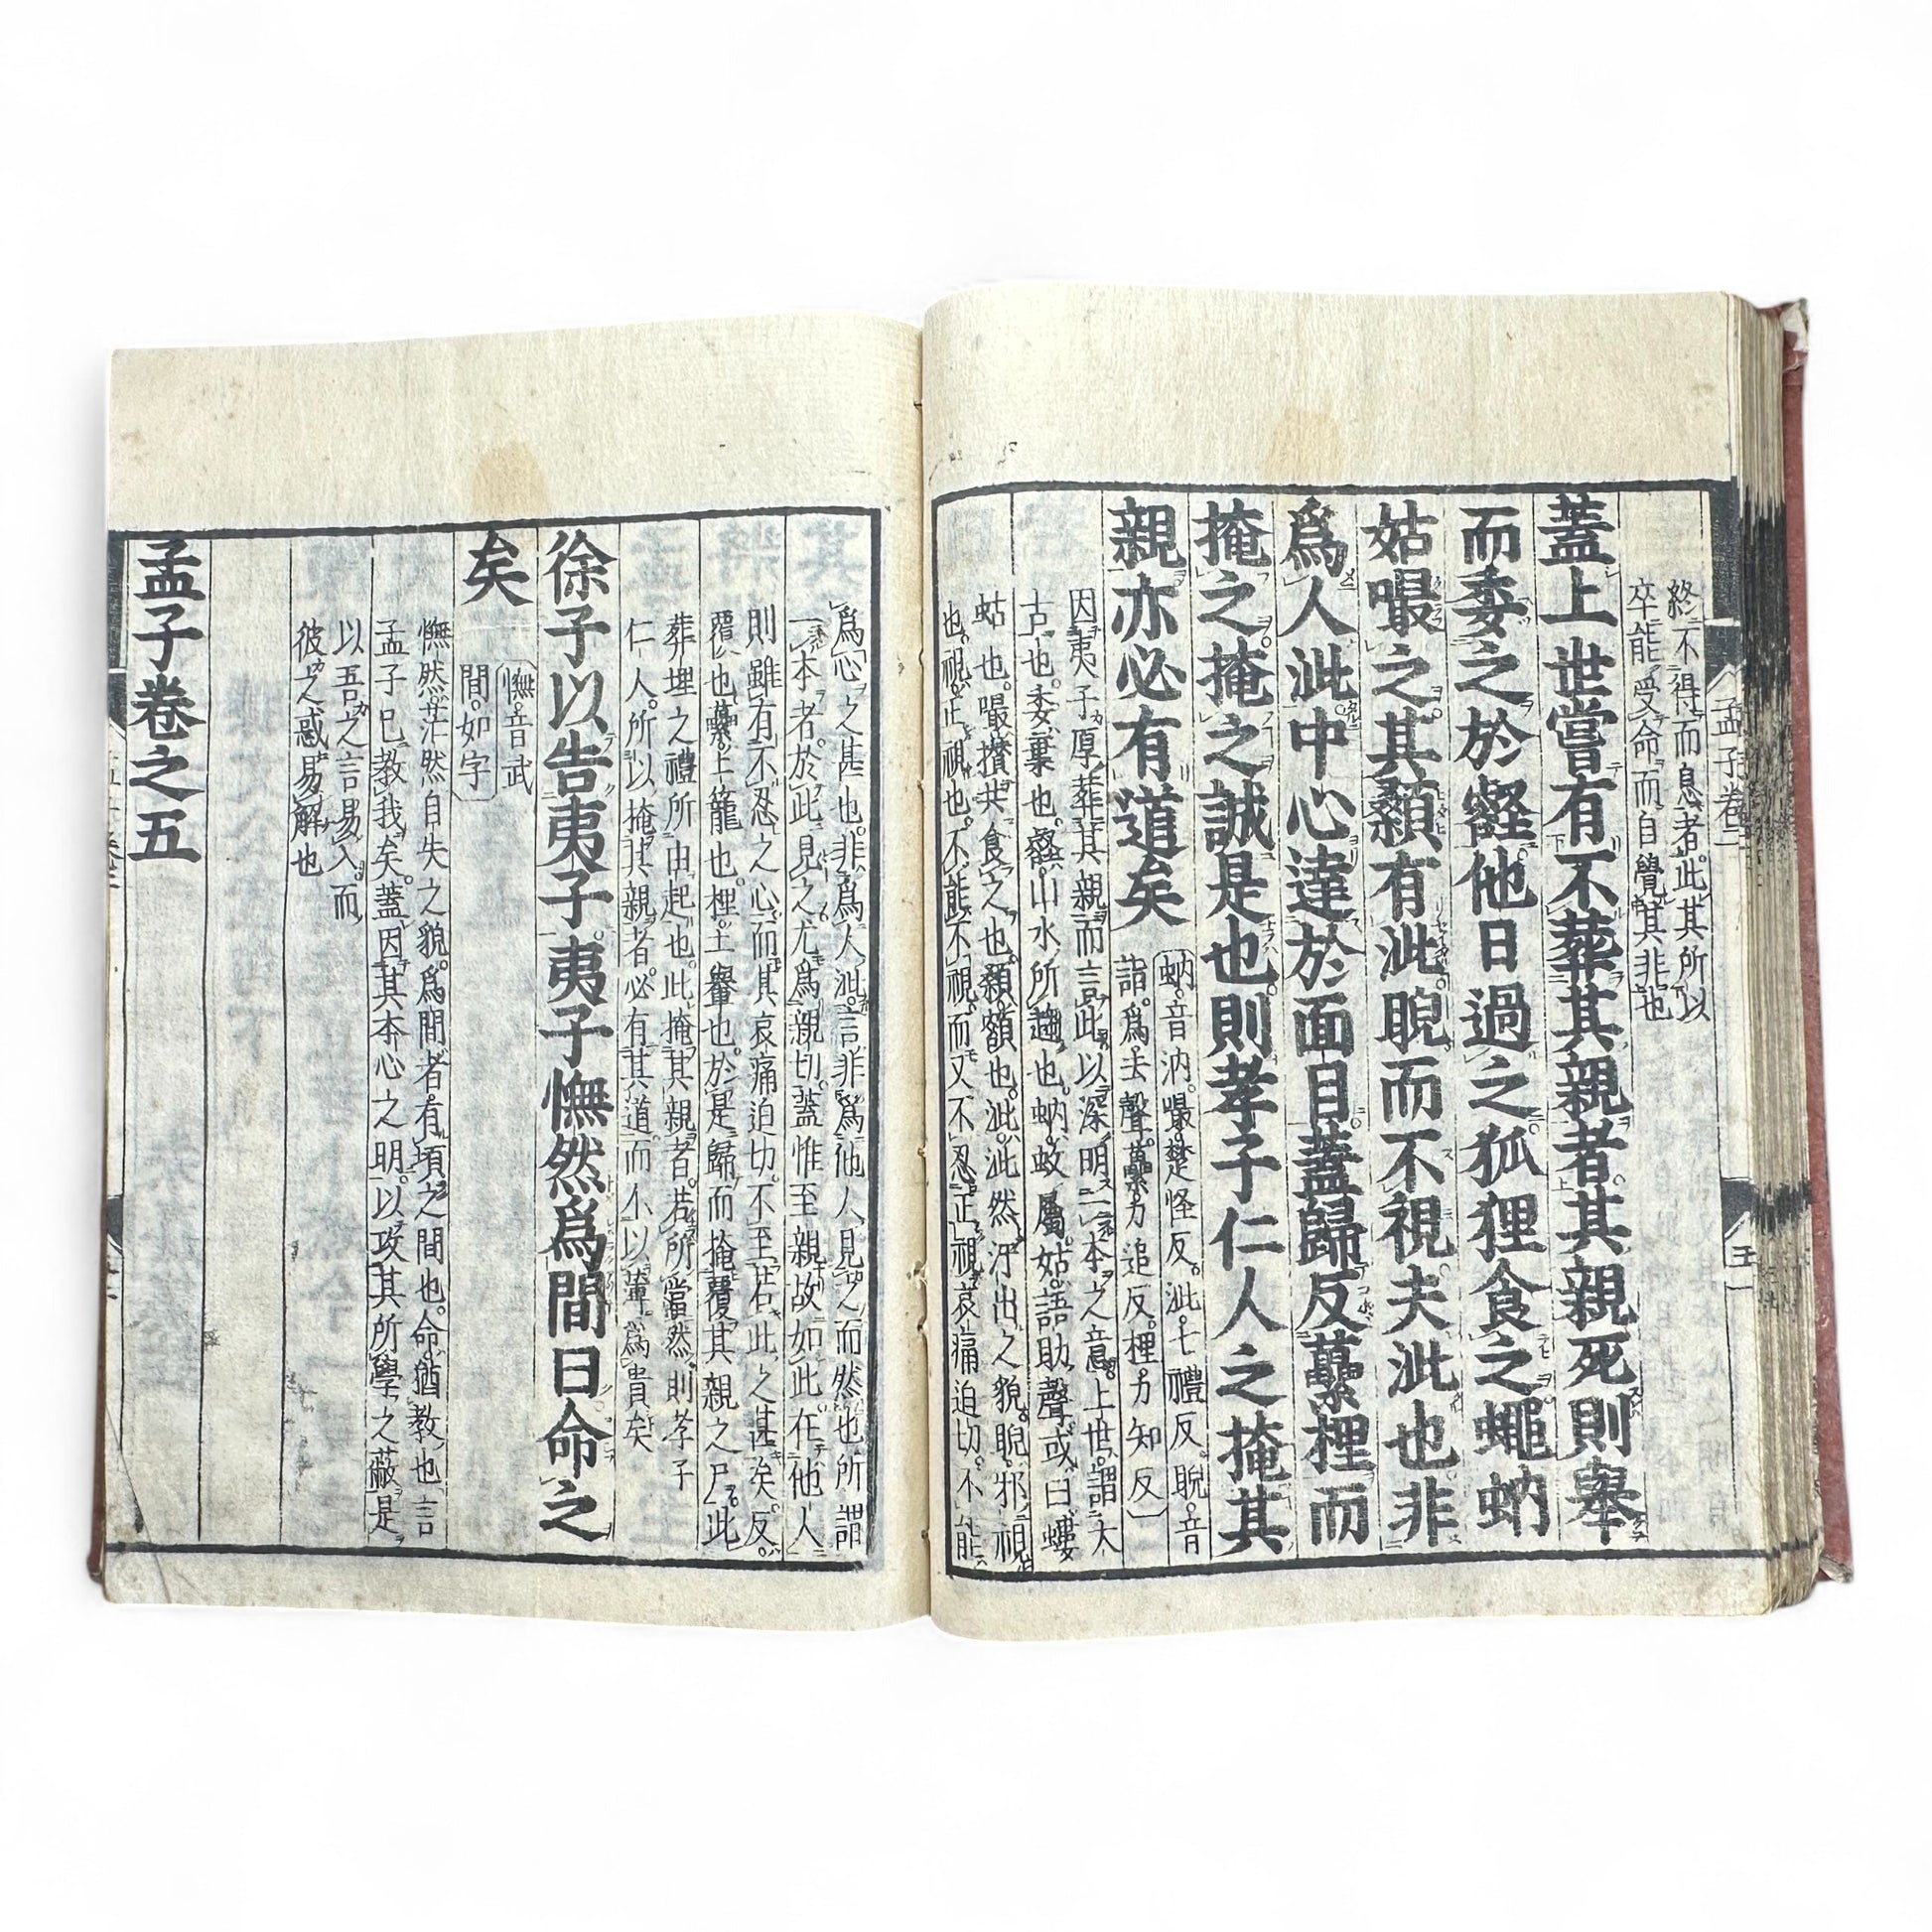 終不得而息者此其所以
卒能受命而自覺其非也
蓋上世嘗有不葬其親者其親死則舉
而委之於壑他日過之狐狸食之蠅蚋
姑嘬之其顙有泚睨而不視夫泚也非
爲人泚中心達於面目蓋歸反虆梩而
掩之掩之誠是也則孝子仁人之掩其
親亦必有道矣
蚋音汭嘬楚怪反泚七禮反睨音
詣爲去聲虆力追反梩力知反
因夷子原葬其親而言此以深明一本之意上世謂大
古也委棄也壑山水所趨也蚋蚊屬姑語助聲或曰螻
蛄也嘬攢共食之也顙額也泚泚然汗出之貌睨邪視
也視正視也不能不視而又不忍正視哀痛迫切不能
爲心之甚也非爲人泚言非爲他人見之而然也所謂
一本者於此見之尤爲親切蓋惟至親故如此在他人
則雖有不忍之心而其哀痛迫切不至若此之甚矣反
覆也虆土籠也梩土轝也於是歸而掩覆其親之尸此
葬埋之禮所由起也此掩其親者若所當然則孝子
仁人所以掩其親者必有其道而不以薄爲貴矣
徐子以告夷子夷子憮然爲間曰命之
矣
憮音武
間如字
憮然茫然自失之貌爲間者有頃之間也命猶教也言
孟子已教我矣蓋因其本心之明以攻其所學之蔽是
以吾之言易入而
彼之惑易解也
孟子卷之五
孟子卷三